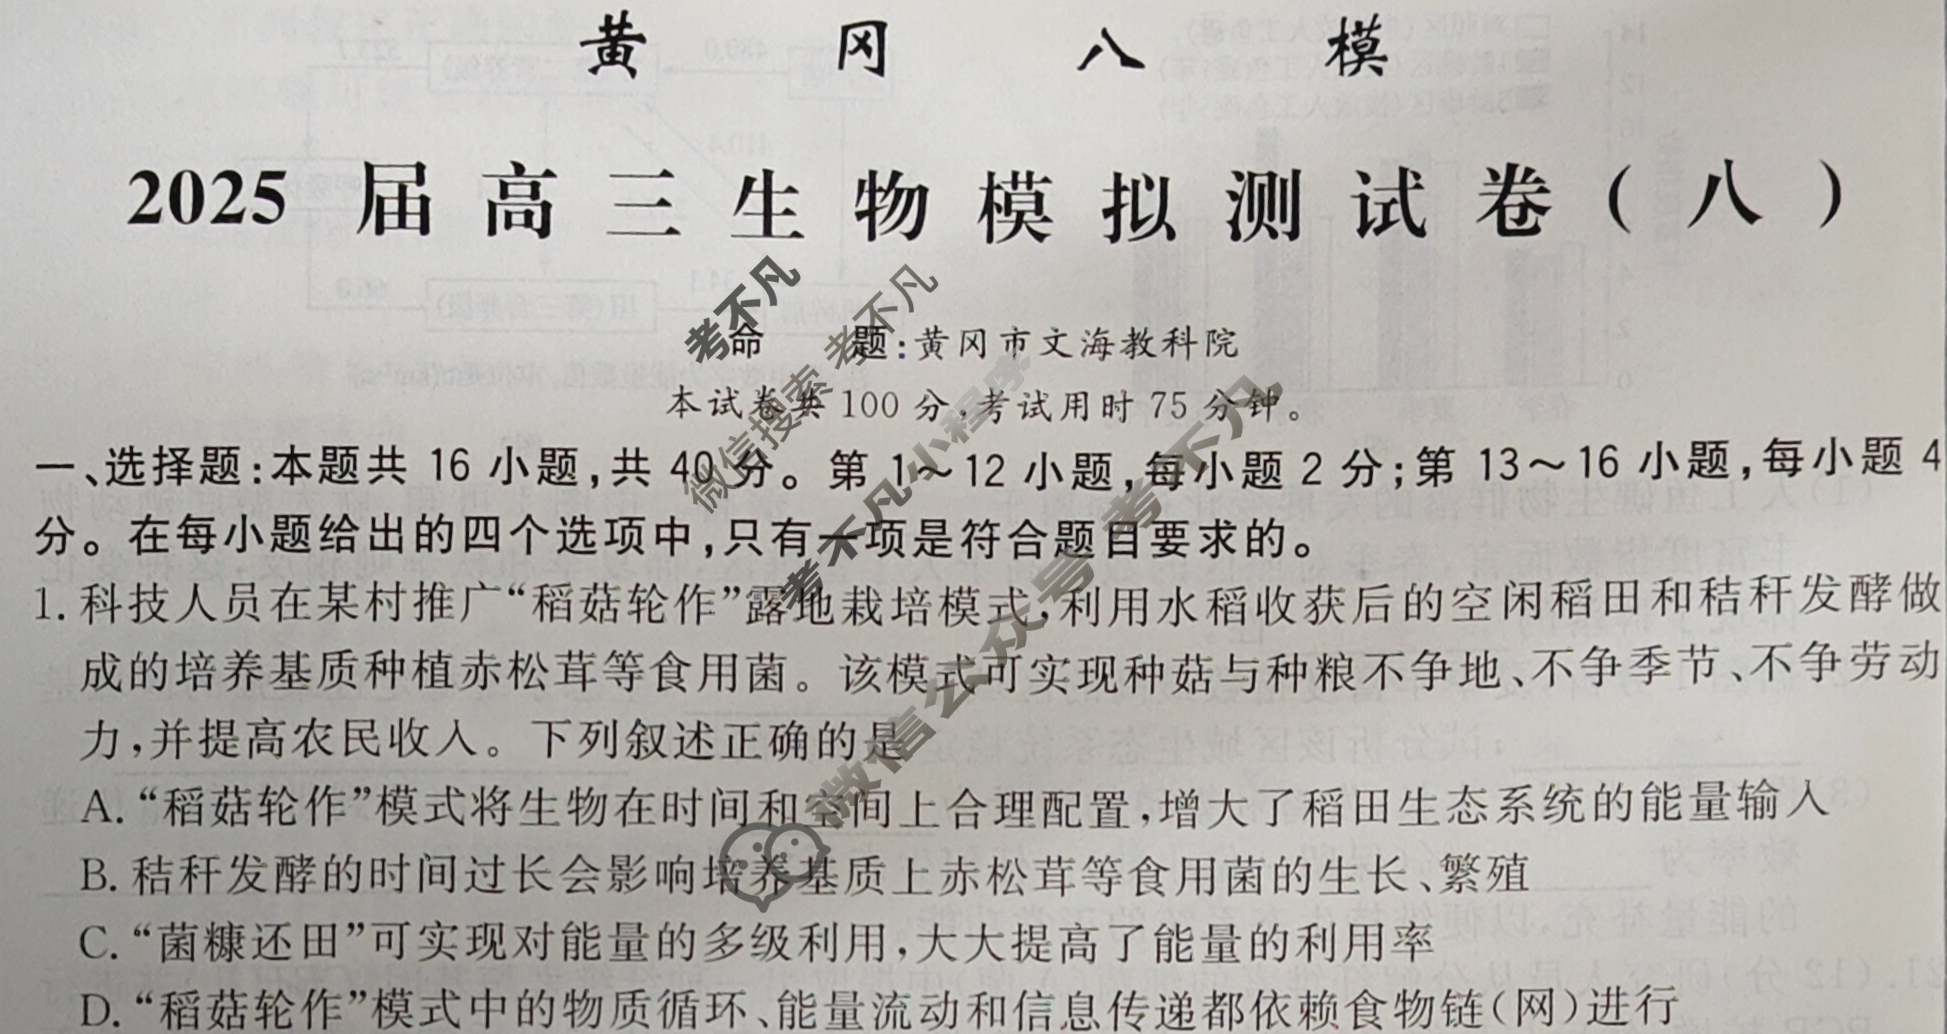 黄冈八模
2025届高三生物模拟测试卷(八)
命 题:黄冈市文海教科院
本试卷共100分,考试用时75分钟。
一、选择题:本题共16小题,共40分。第1~12小题,每小题2分;第13~16小题,每小题4
分。在每小题给出的四个选项中,只有一项是符合题目要求的。
1.科技人员在某村推广“稻菇轮作”露地栽培模式,利用水稻收获后的空闲稻田和秸秆发酵做
成的培养基质种植赤松茸等食用菌。该模式可实现种菇与种粮不争地、不争季节、不争劳动
力,并提高农民收入。下列叙述正确的是
A.“稻菇轮作”模式将生物在时间和空间上合理配置,增大了稻田生态系统的能量输入
B.秸秆发酵的时间过长会影响培养基质上赤松茸等食用菌的生长、繁殖
C.“菌糠还田”可实现对能量的多级利用,大大提高了能量的利用率
D.“稻菇轮作”模式中的物质循环、能量流动和信息传递都依赖食物链(网)进行
考不凡
微信搜索 考不凡
考不凡小程序
微信公众号 考不凡